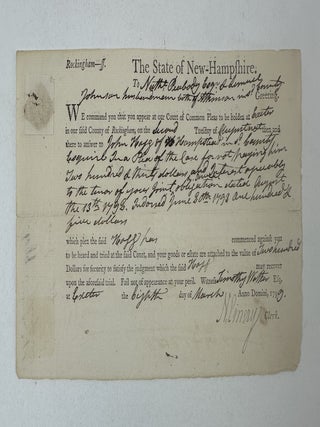 Rockingham—ss. The State of New-Hampshire.
To Nathl Peabody Esqr & Samuel
Johnson husbandman both of Atkinson in sd County
Greeting.
WE command you that you appear at our Court of Common Pleas to be holden at Exeter
in our said County of Rockingham, on the second Tuesday of August next then and
there to answer to John Hoff of Hampstead in sd County
Esquire In a Plea of the Case for not paying him
Two hundred & thirty dollars and Interest agreeably
to the tenor of your joint obligation dated August
the 13th 1788. Indorsed June 30th 1798 one hundred &
five dollars
which plea the said Hoff has commenced against you
to be heard and tried at the said Court, and your goods or estate are attached to the value of Two hundred
Dollars for security to satisfy the judgment which the said Hoff may recover
upon the aforesaid trial. Fail not of appearance at your peril. Witness Timothy Walker Esq.
at Exeter the Eighth day of March Anno Domini, 179
Clerk.